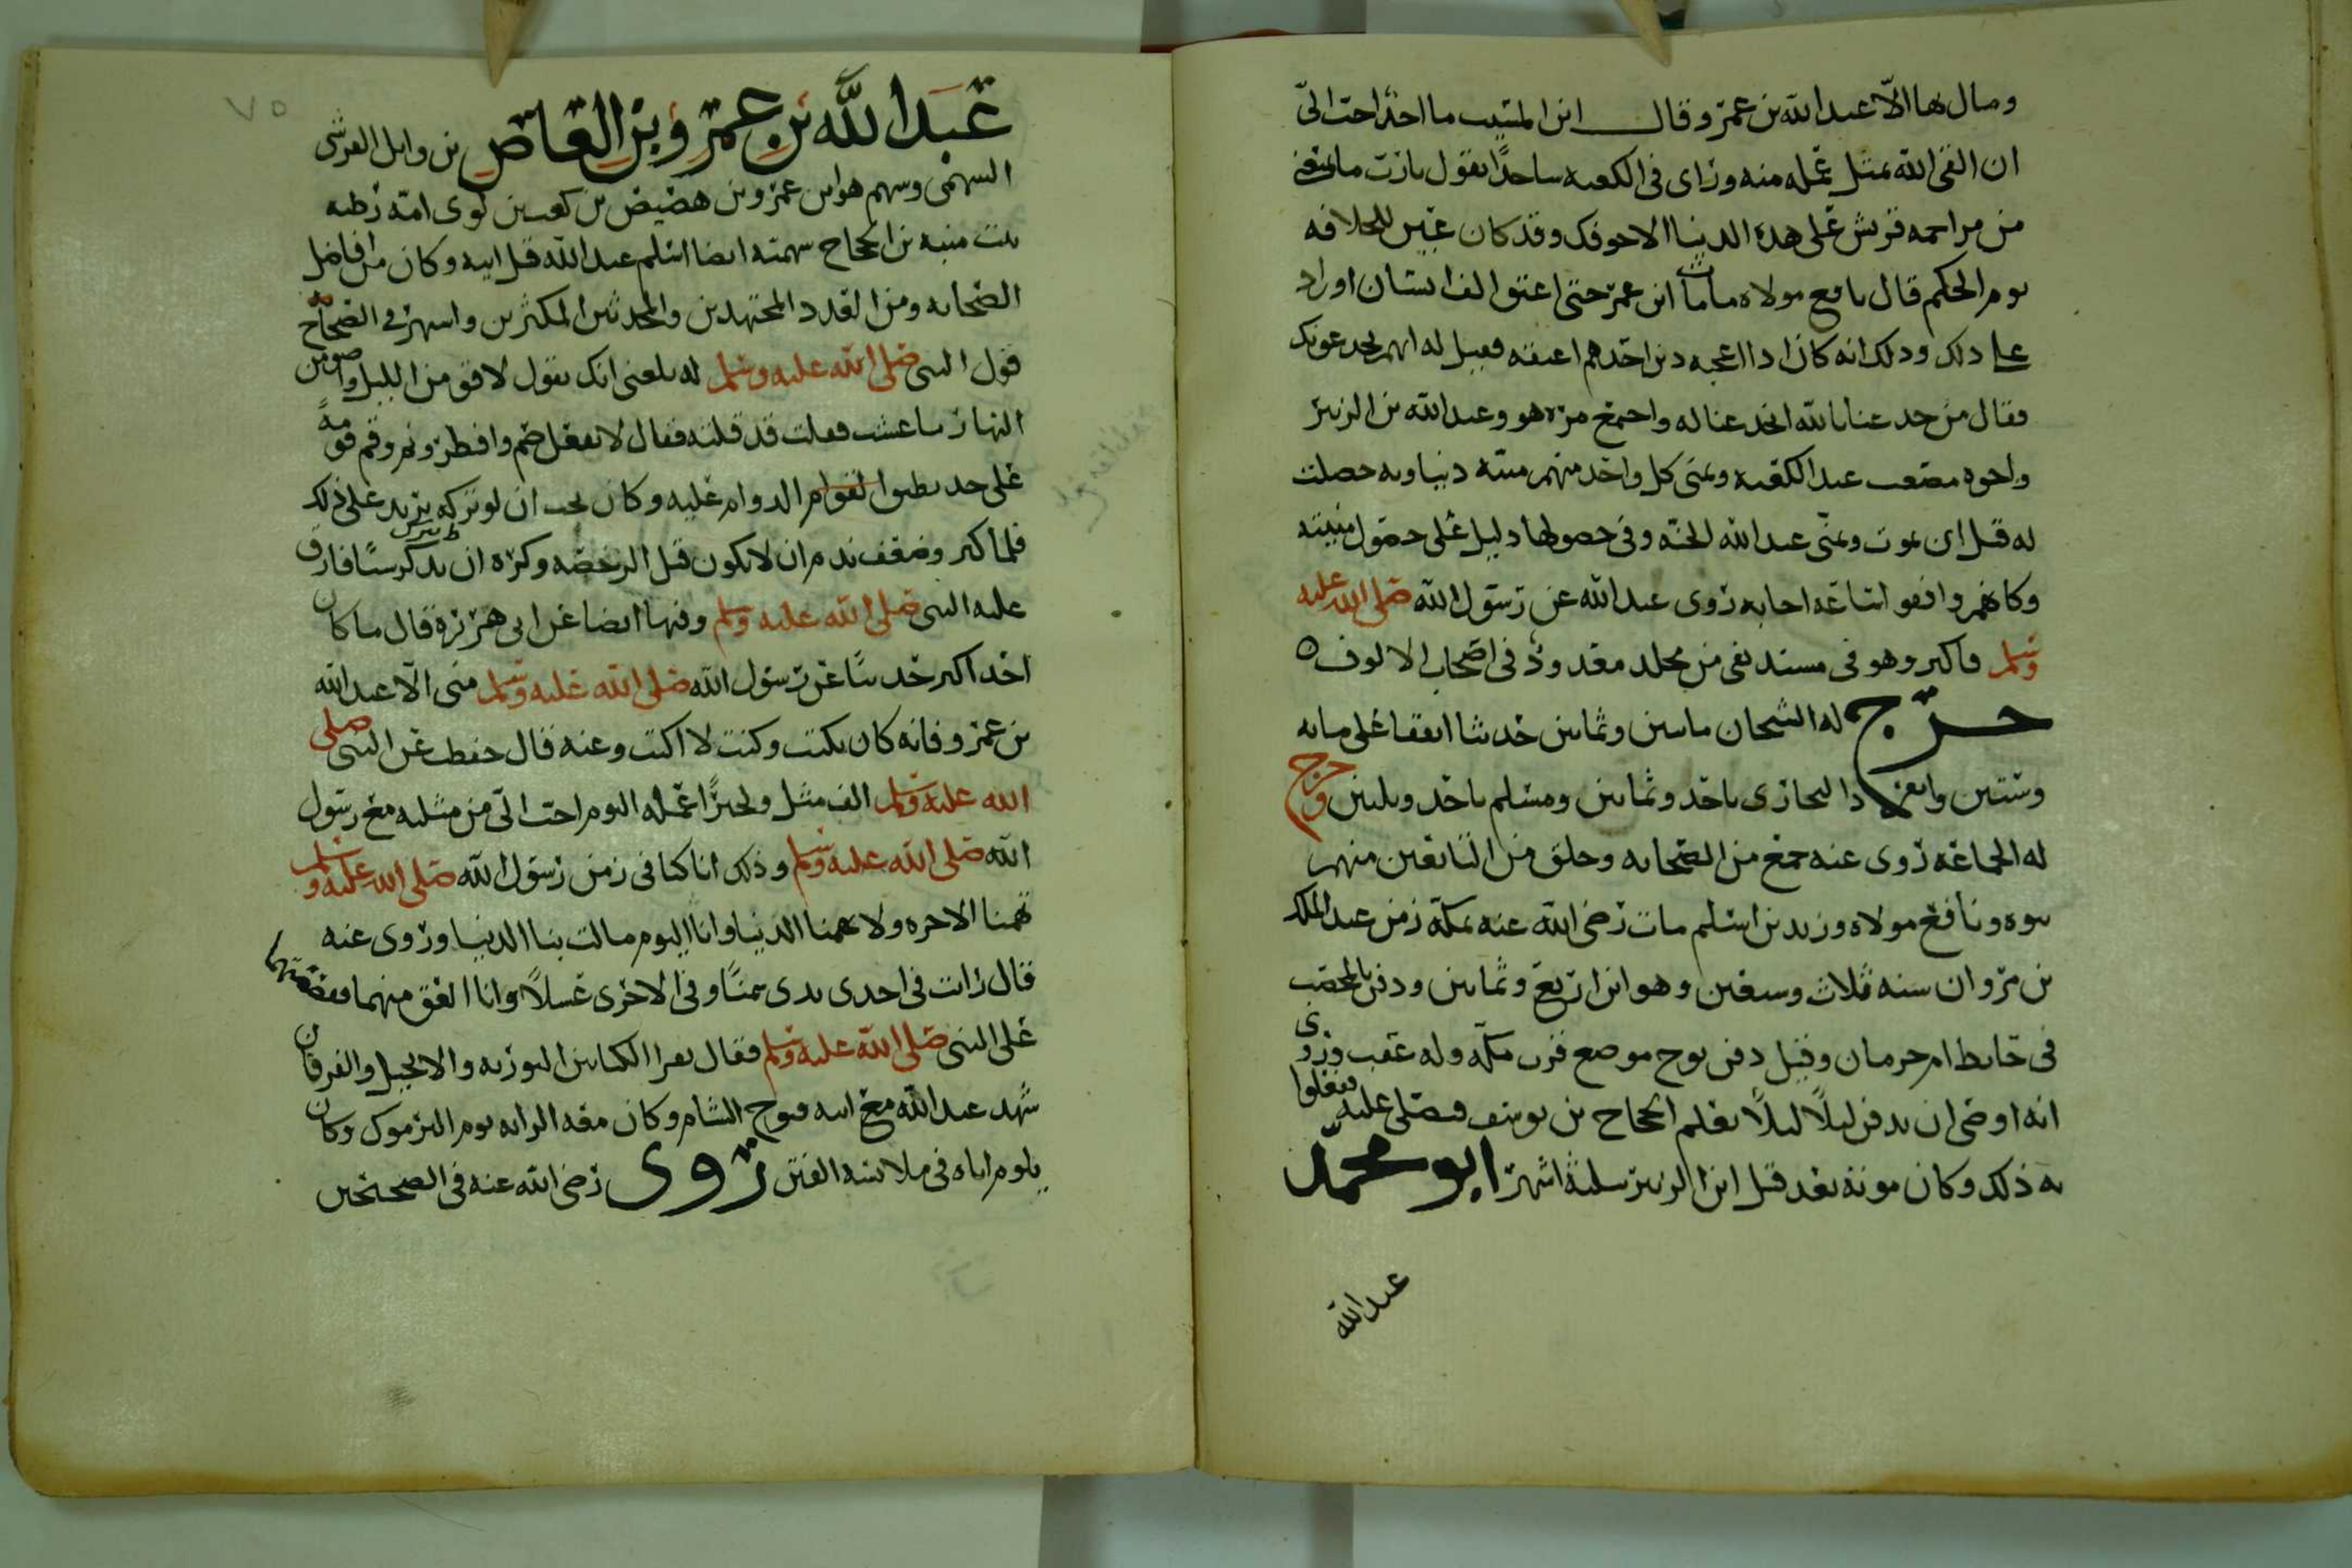 ومال بها الا عبد الله بن عمر وقال ابن المسيب ما احد احب الي
ان القى الله بمثل عمله منه وراى في الكعبه ساجدا يقول يا رب ما يمنعني
من مزاحمة قريش على هذه الدنيا الا خوفك وقد كان عين للخلافه
يوم الحكم قال نافع مولاه ما مات ابن عمر حتى اعتق الف انسان او زاد
على ذلك وذلك انه كان اذا اعجبه دين احدهم اعتقه فقيل له انهم يخدعونك
فقال من خدعنا بالله انخدعنا له واجتمع مره هو وعبد الله بن الزبير
واخوه مصعب عند الكعبه وتمنى كل واحد منهم منية دنياويه حصلت
له قبل ان يموت وتمنى عبد الله الجنه وفي حصولها دليل على حصول منيته
وكانهم وافقوا ساعه اجابه روى عبد الله عن رسول الله صلى الله عليه
وسلم فاكثر وهو في مسند بقي من مخلد معدود في اصحاب الالوف ه
خرج له الشيخان مايتين وثمانين حديثا اتفقا على مايه
وستين وانفرد البخاري باحد وثمانين ومسلم باحد وثلثين وخرج
له الجماعه روى عنه جمع من الصحابه وخلق من التابعين منهم
بنوه ونافع مولاه وزيد بن اسلم مات رضي الله عنه بمكة زمن عبد الملك
بن مروان سنه ثلاث وسبعين وهو ابن اربع وثمانين ودفن بالمحصب
في حايط ام خرمان وقيل دفن بوج موضع قرب مكه وله عقب وروي
انه اوصى ان يدفن ليلا ليلا يعلم الحجاج بن يوسف فيصلي عليه ففعلوا
به ذلك وكان موته بعد قتل ابن الزبير بثلثة اشهر ابو محمد
عبد الله
٧٥
عبد الله بن عمرو بن العاص بن وايل القرشي
السهمي وسهم هو ابن عمرو بن هصيص بن كعب بن لوي امه ريطه
بنت منبه بن الحجاج سهميه ايضا اسلم عبد الله قبل ابيه وكان من افاضل
الصحابه ومن العدد المجتهدين والمحدثين المكثرين واشتهر في الصحاح
قول النبي صلى الله عليه وسلم له بلغني انك تقول لاقومن الليل واصومن
النهار ما عشت فقلت قد قلته فقال لا تفعل صم وافطر ونم وقم قومة
على حد يطيق القوام الدوام عليه وكان يجب ان لو تركه يزيد على ذلك
فلما كبر وضعف ندم ان لا يكون قبل الرخصه وكره ان يترك شيا فارق
عليه النبي صلى الله عليه وسلم وفيها ايضا عن ابي هريرة قال ما كان
احد اكثر حديثا عن رسول الله صلى الله عليه وسلم مني الا عبد الله
بن عمرو فانه كان يكتب وكنت لا اكتب وعنه قال حفظت عن النبي صلى
الله عليه وسلم الف مثل ولخير اعمله اليوم احب الي من مثليه مع رسول
الله صلى الله عليه وسلم وذلك انا كنا في زمن رسول الله صلى الله عليه وسلم
تهمنا الاخره ولا تهمنا الدنيا وانا اليوم مالت بنا الدنيا وروى عنه
قال رايت في احدى يدي سمنا وفي الاخرى عسلا وانا العق منهما فقصصتها
على النبي صلى الله عليه وسلم فقال تقرا الكتابين التوريه والانجيل والفرقان
شهد عبد الله مع ابيه فتوح الشام وكان معه الرايه يوم اليرموك وكان
يلوم اباه في ملابسه الفتن روى رضي الله عنه في الصحيحين